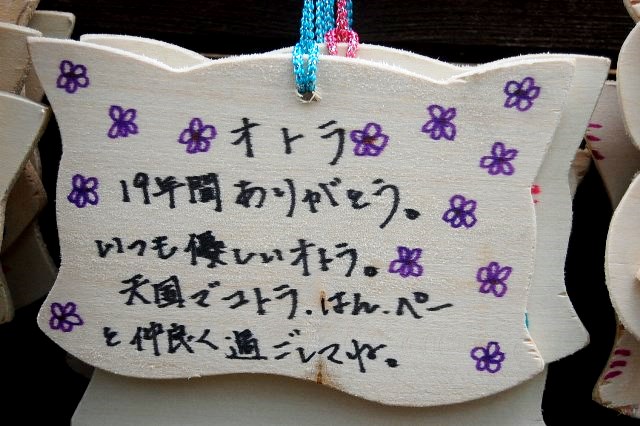 オトラ
19年間ありがとう。
いつも優しいオトラ。
天国でコトラ.はん.ペー
と仲良く過ごしてね。